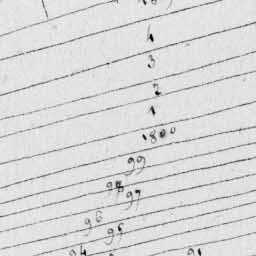 4
3
2
1
1800
99
98
97
96
95
94 91